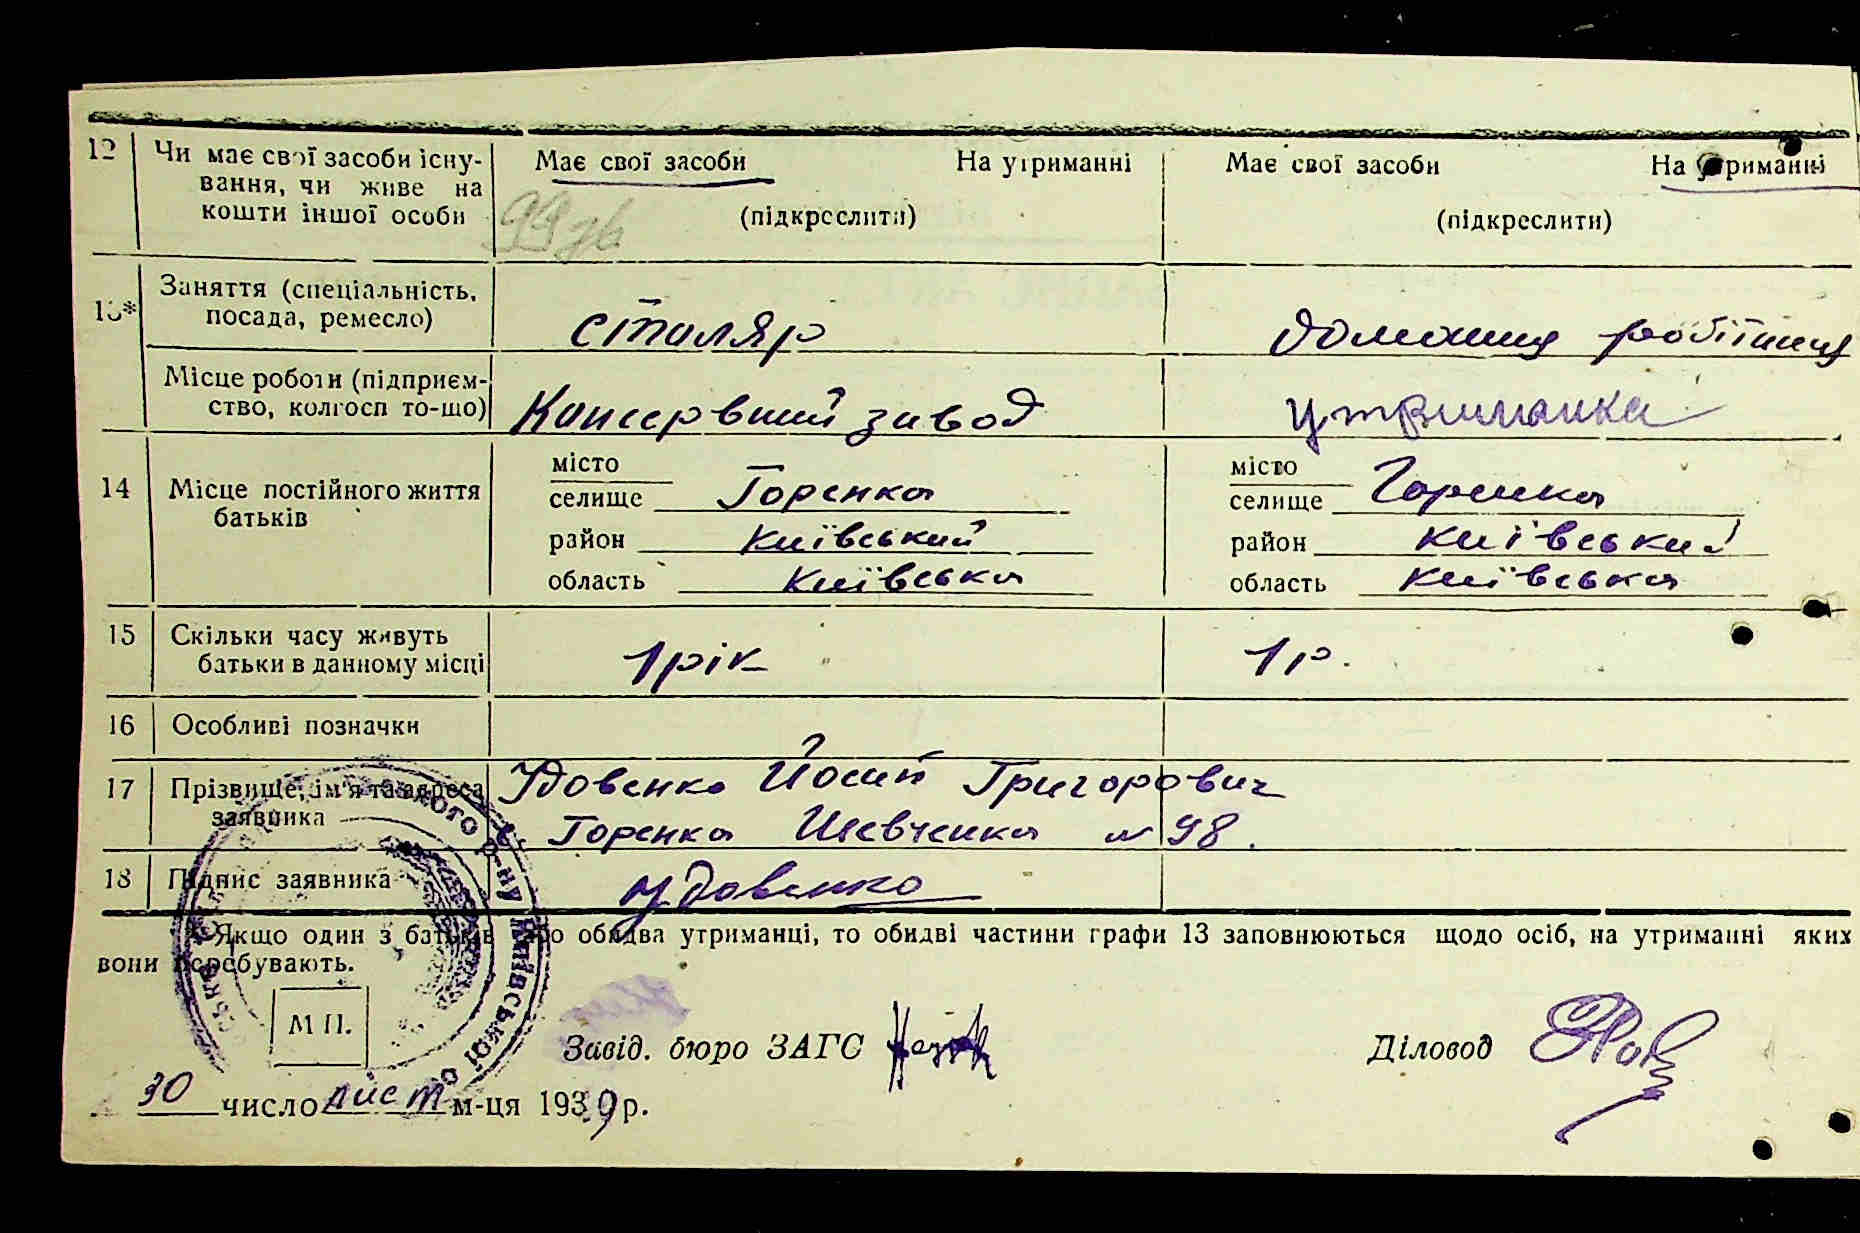 12 Чи має свої засоби існу-
вання, чи живе на
кошти іншої особи
Має свої засоби На утриманні
(підкреслити)
Має свої засоби На утриманні
(підкреслити)
13* Заняття (спеціальність,
посада, ремесло)
столяр
домашня робітниця
Місце роботи (підприєм-
ство, колгосп то-що)
Консервний завод
утриманка
14 Місце постійного життя
батьків
місто
селище Горенка
район Київський
область Київська
місто
селище Горенка
район Київський
область Київська
15 Скільки часу живуть
батьки в данному місці
1 рік
1 р.
16 Особливі позначки
17 Прізвище, ім'я та адреса
заявника
Удовенко Йосип Григорович
с. Горенка Шевченка № 98.
18 Підпис заявника
Удовенко
* Якщо один з батьків або обидва утриманці, то обидві частини графи 13 заповнюються щодо осіб, на утриманні яких
вони перебувають.
М П.
Завід. бюро ЗАГС
Діловод
30 число лист м-ця 1939 р.